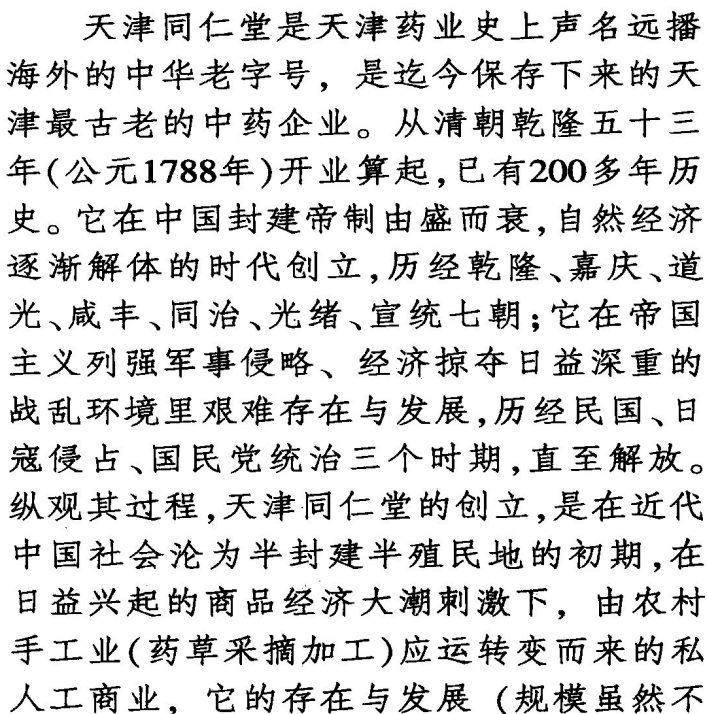 天津同仁堂是天津药业史上声名远播
海外的中华老字号，是迄今保存下来的天
津最古老的中药企业。从清朝乾隆五十三
年(公元1788年)开业算起,已有200多年历
史。它在中国封建帝制由盛而衰,自然经济
逐渐解体的时代创立,历经乾隆、嘉庆、道
光、咸丰、同治、光绪、宣统七朝;它在帝国
主义列强军事侵略、经济掠夺日益深重的
战乱环境里艰难存在与发展,历经民国、日
寇侵占、国民党统治三个时期,直至解放。
纵观其过程,天津同仁堂的创立,是在近代
中国社会沦为半封建半殖民地的初期,在
日益兴起的商品经济大潮刺激下，由农村
手工业(药草采摘加工)应运转变而来的私
人工商业，它的存在与发展（规模虽然不